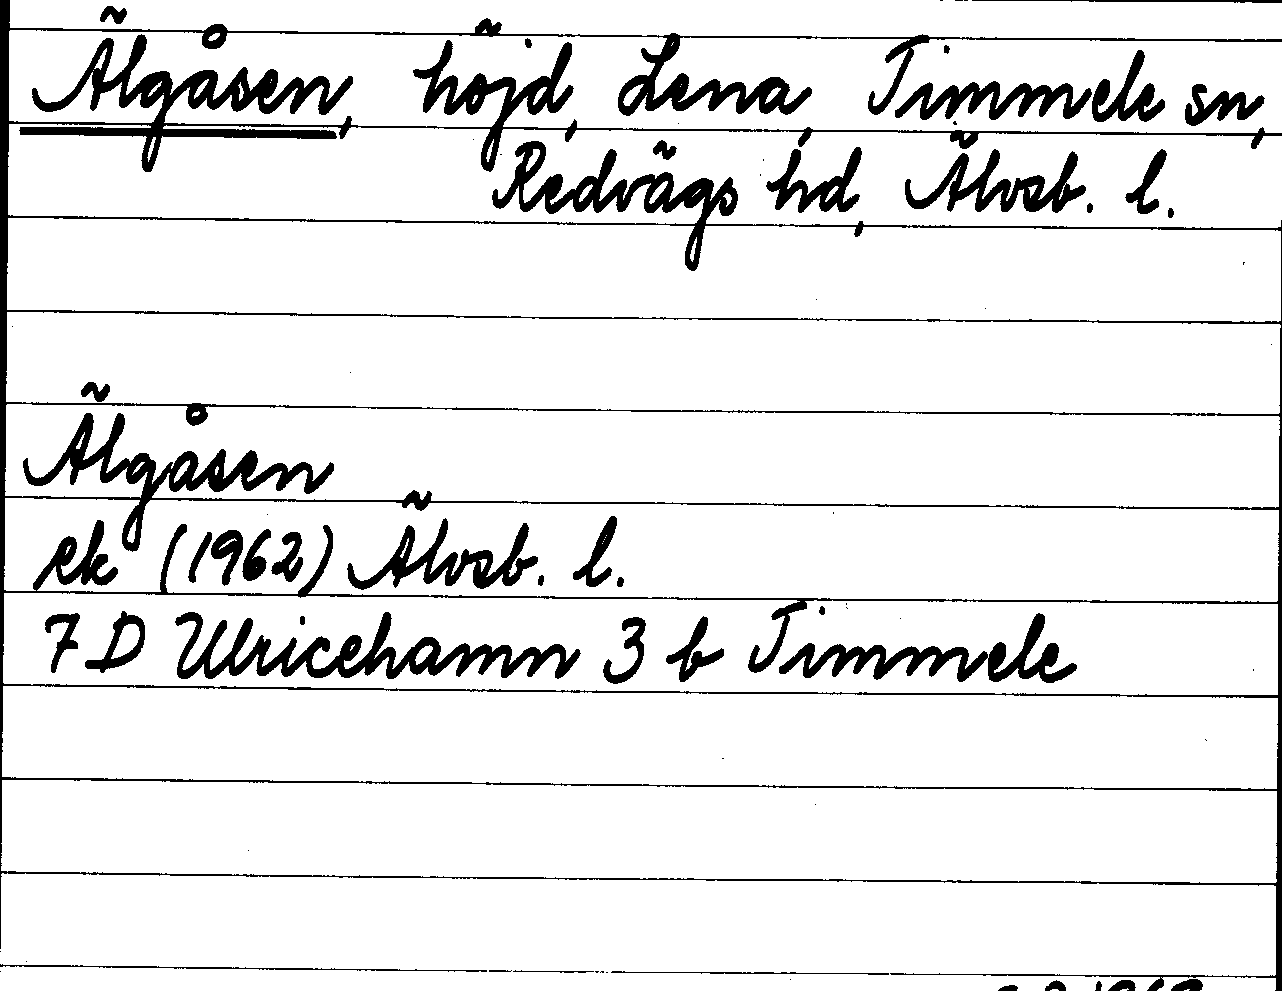 Älgåsen, höjd, Lena, Timmele sn,
Redvägs hd, Älvsb. l.
Älgåsen
ek (1962) Älvsb. l.
7 D Ulricehamn 3 b Timmele